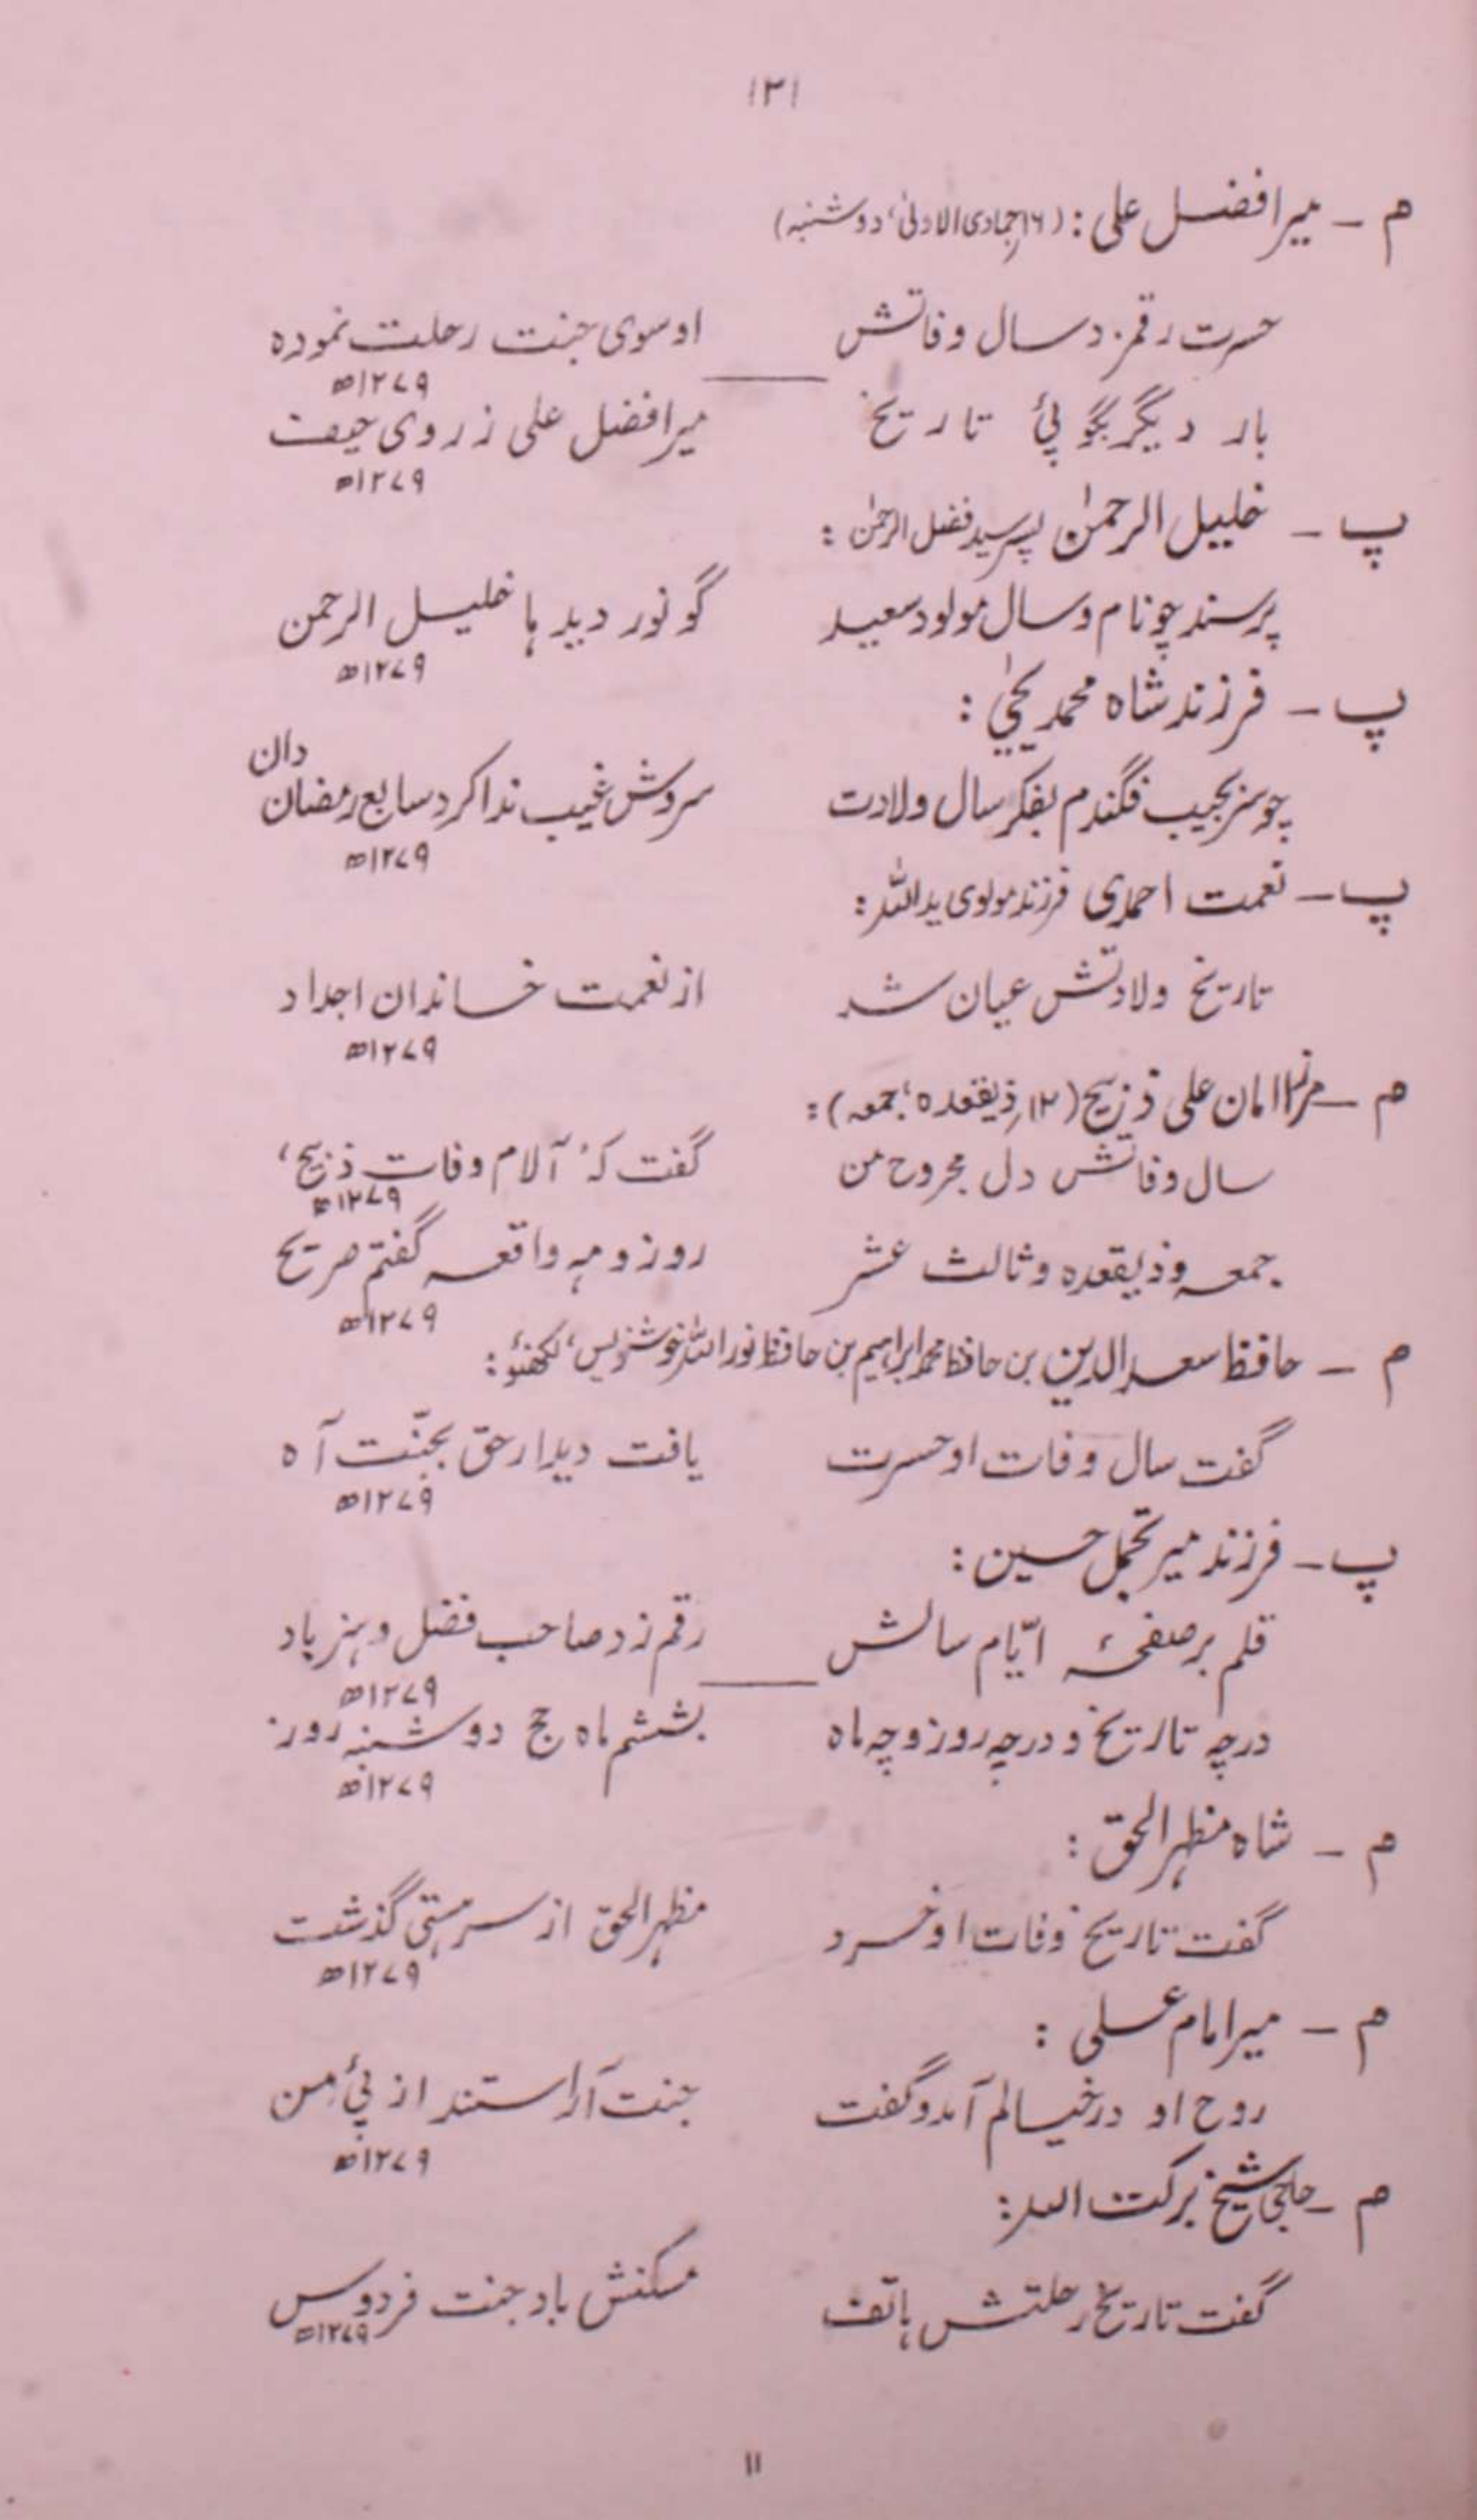 ۱۲۱
م ـ میر افضل علی : (۱۶؍جمادی الاولیٰ، دوشنبہ)
حسرت رقم زد سال وفاتش او سوی جنت رحلت نمودہ
۱۲۷۹ھ
بار دیگر بگو پئ تاریخ میر افضل علی ز روی حیف
۱۲۷۹ھ
پ ـ خلیل الرحمٰن پسر سید فضل الرحمٰن :
پرسند چو نام و سال مولود سعید گو نور دیدہا خلیل الرحمن
۱۲۷۹ھ
پ ـ فرزند شاہ محمد یحییٰ :
چو سر بجیب فگندم بفکر سال ولادت سروش غیب ندا کرد سابع رمضان دان
۱۲۷۹ھ
پ ـ نعمت احمدی فرزند مولوی ید اللہ :
تاریخ ولادتش عیان شد از نعمت خاندان اجداد
۱۲۷۹ھ
م ـ مرزا امان علی ذبیح (۱۳؍ذیقعدہ، جمعہ) :
سال وفاتش دل مجروح من گفت کہ ’آلام وفات ذبیح‘
۱۲۷۹ھ
جمعہ و ذیقعدہ و ثالث عشر روز و مہ واقعہ گفتم صریح
۱۲۷۹ھ
م ـ حافظ سعد الدین بن حافظ محمد ابراہیم بن حافظ نور اللہ خوشنویس، لکھنؤ :
گفت سال وفات او حسرت یافت دیدار حق بجنّت آہ
۱۲۷۹ھ
پ ـ فرزند میر تجمل حسین :
قلم بر صفحۂ ایّام سالش رقم زد صاحب فضل و ہنر باد
۱۲۷۹ھ
درچہ تاریخ و درچہ روز و چہ ماہ بششم ماہ حج دوشنبہ روز
۱۲۷۹ھ
م ـ شاہ مظہر الحق :
گفت تاریخ وفات او خرد مظہر الحق از سر ہستی گذشت
۱۲۷۹ھ
م ـ میر امام علی :
روح او در خیالم آمد و گفت جنت آراستند از پئ من
۱۲۷۹ھ
م ـ حاجی شیخ برکت اللہ :
گفت تاریخ رحلتش ہاتف مسکنش باد جنت فردوس
۱۲۷۹ھ
۱۱